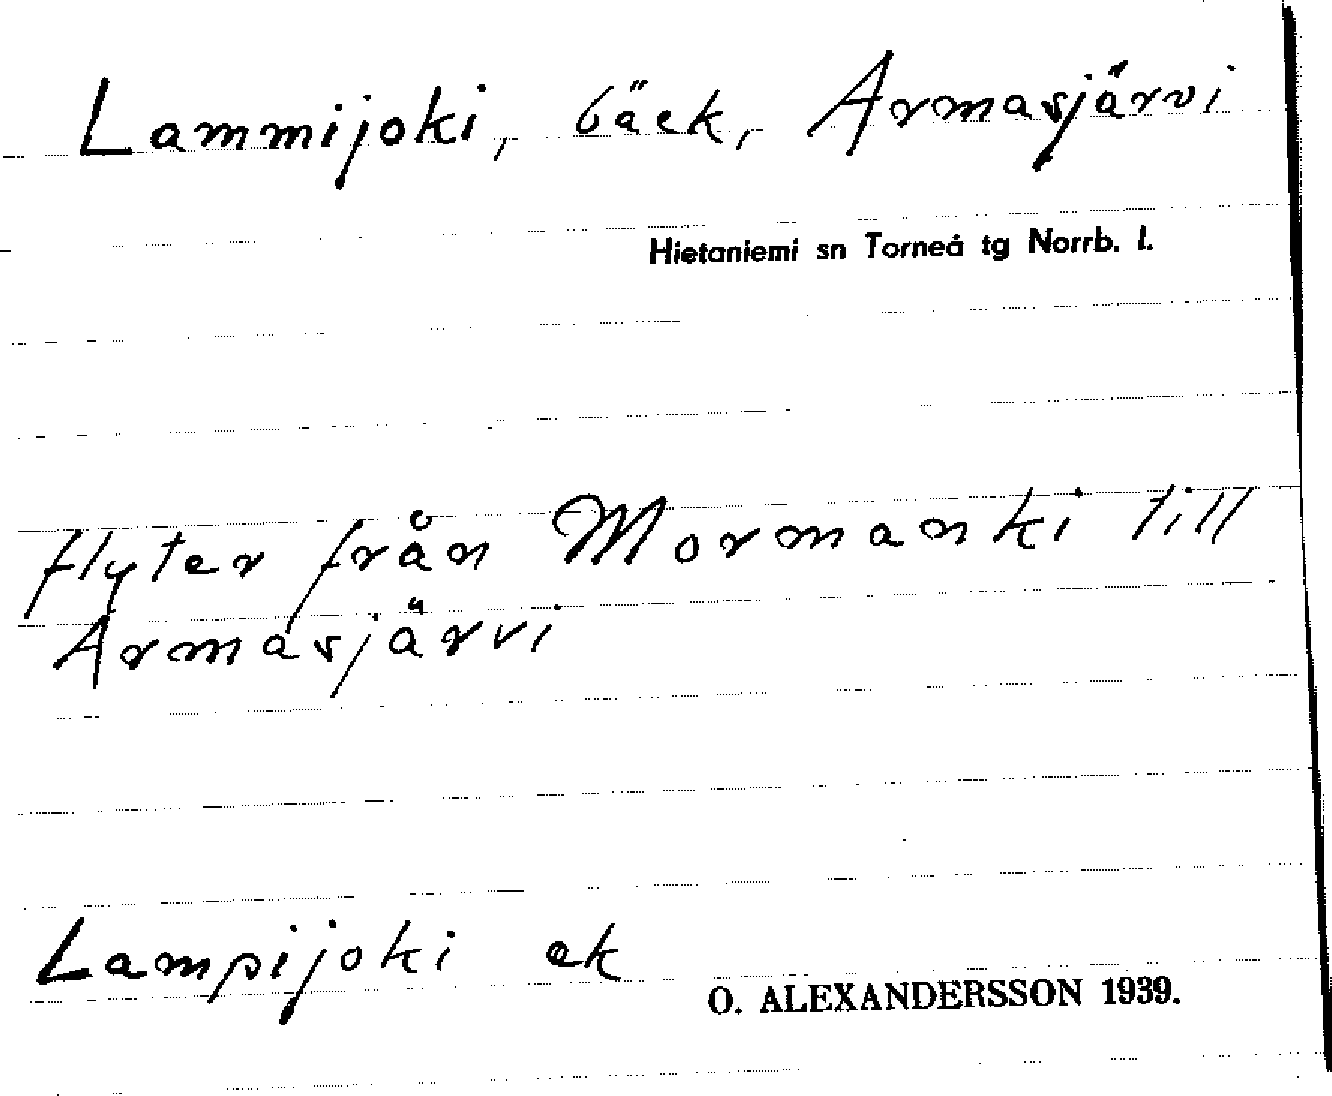 Lammijoki, bäck, Armasjärvi
Hietaniemi sn Torneå tg Norrb. l.
flyter från Mormanki till
Armasjärvi
Lampijoki ek
O. ALEXANDERSSON 1939.